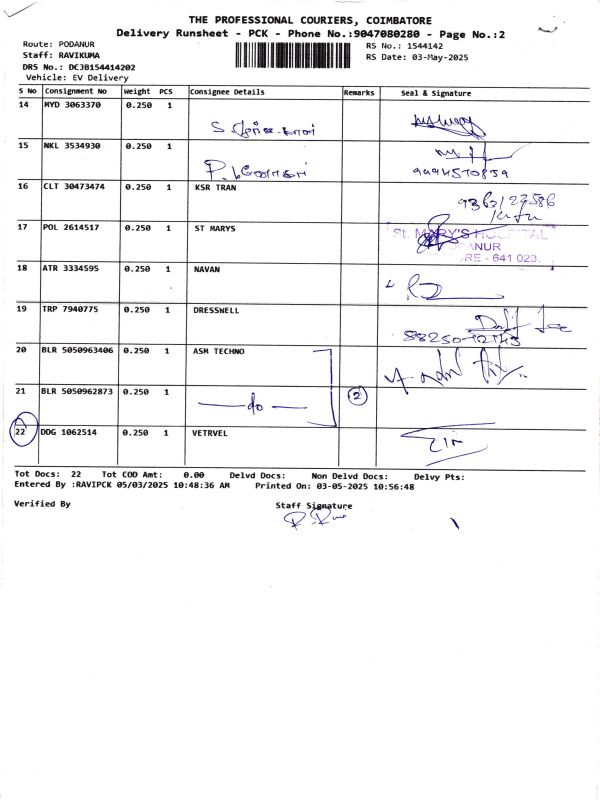 THE PROFESSIONAL COURIERS, COIMBATORE
Delivery Runsheet - PCK - Phone No.:9047080280 - Page No.:2
Route: PODANUR
RS No.: 1544142
Staff: RAVIKUMA
RS Date: 03-May-2025
DRS No.: DCJB154414202
Vehicle: EV Delivery
S No Consignment No Weight PCS Consignee Details Remarks Seal & Signature
14 MYD 3063370 0.250 1
15 NKL 3534930 0.250 1
9994570859
16 CLT 30473474 0.250 1 KSR TRAN
17 POL 2614517 0.250 1 ST MARYS
St. MARY'S HOSPITAL
ANUR
RE - 641 023.
18 ATR 3334595 0.250 1 NAVAN
19 TRP 7940775 0.250 1 DRESSWELL
20 BLR 5050963406 0.250 1 ASM TECHNO
21 BLR 5050962873 0.250 1 do 2
22 DDG 1062514 0.250 1 VETRVEL
Tot Docs: 22 Tot COD Amt: 0.00 Delvd Docs: Non Delvd Docs: Delvy Pts:
Entered By :RAVIPCK 05/03/2025 10:48:36 AM Printed On: 03-05-2025 10:56:48
Verified By
Staff Signature